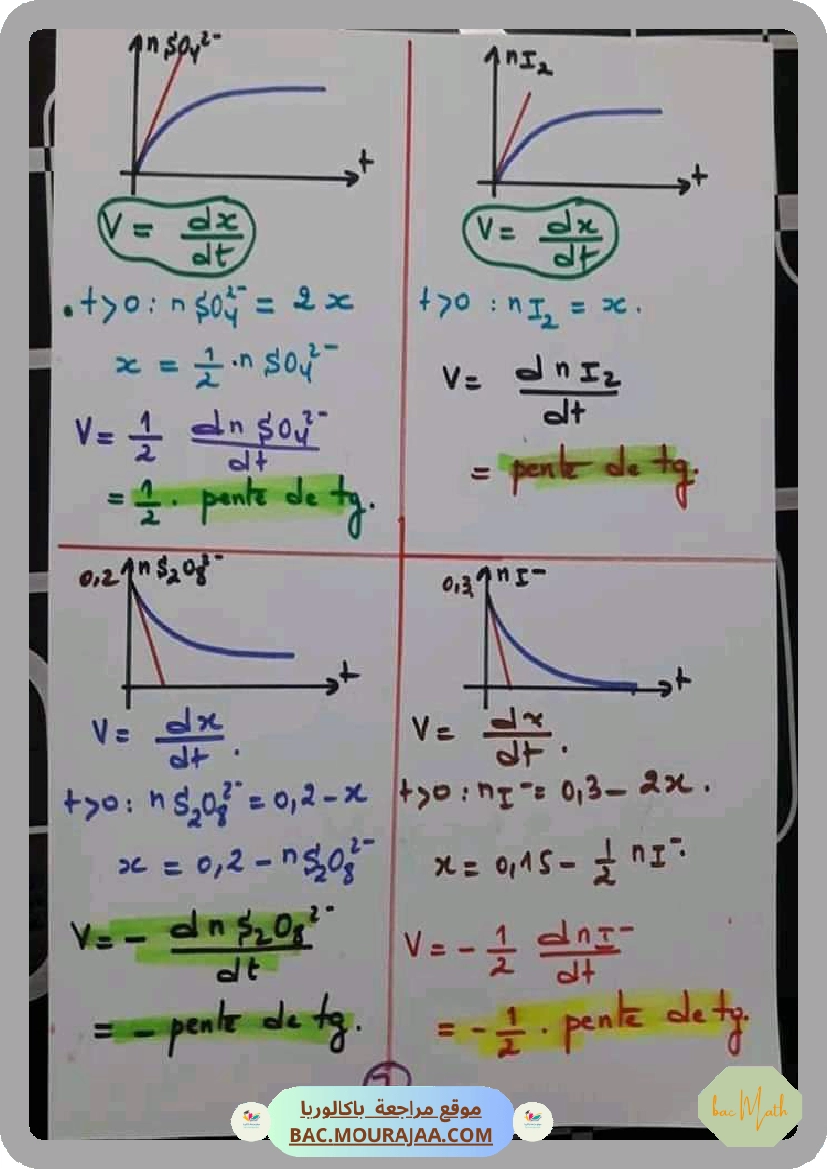 n SO₄²⁻
t
V = dx/dt
t>0 : n SO₄²⁻ = 2x
x = 1/2 . n SO₄²⁻
V = 1/2 dn SO₄²⁻/dt
= 1/2 . pente de tg.
n I₂
t
V = dx/dt
t>0 : n I₂ = x.
V = dn I₂/dt
= pente de tg.
0,2 n S₂O₈²⁻
t
V = dx/dt .
t>0 : n S₂O₈²⁻ = 0,2 - x
x = 0,2 - n S₂O₈²⁻
V = - dn S₂O₈²⁻/dt
= - pente de tg.
0,3 n I⁻
t
V = dx/dt .
t>0 : n I⁻ = 0,3 - 2x .
x = 0,15 - 1/2 n I⁻.
V = - 1/2 dn I⁻/dt
= - 1/2 . pente de tg.
موقع مراجعة باكالوريا
BAC.MOURAJAA.COM
bac Math